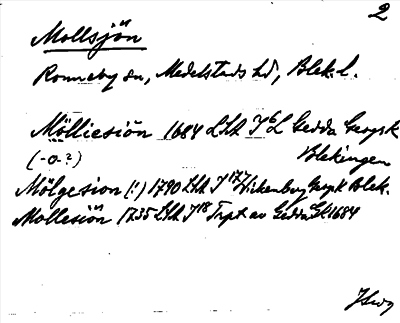 2
Mollsjön
Ronneby sn, Medelstads hd, Blek. l.
Mölliesiön 1684 LSA I 6 L Gedda Geogr k
(-a?) Blekingen
Mölgesion (!) 1790 LSA I 177 Wickenberg Geogr k Blek.
Mollesiön 1735 LSA I 18 Trpt av Gedda Gk 1684